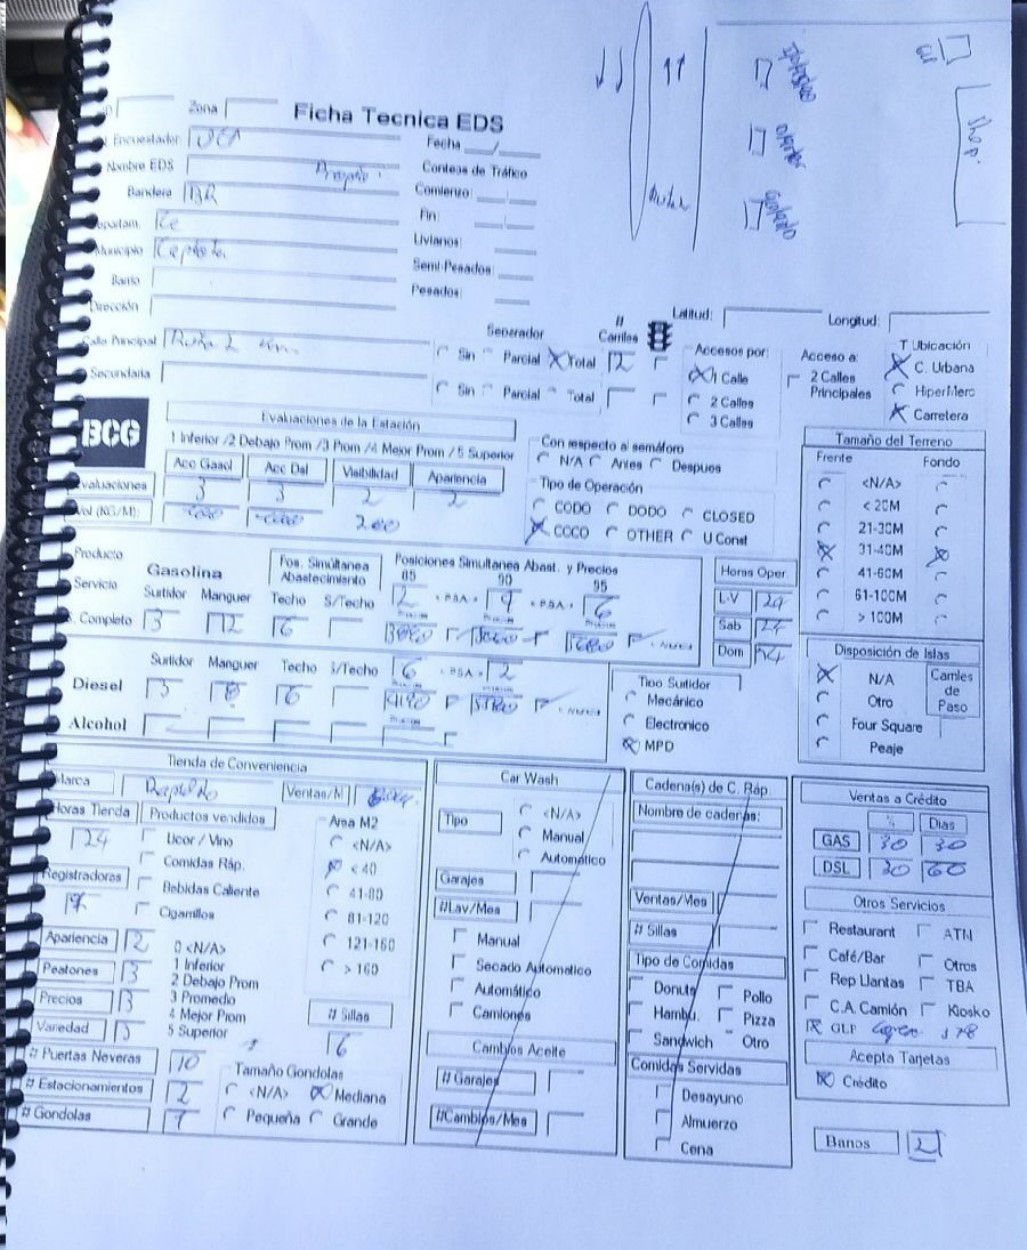 Shop.
Zona
Ficha Tecnica EDS
Encuestador
Fecha
Nombre EDS
Propio
Conteos de Tráfico
Bandera BR
Comienzo:
Fin:
Municipio
Livianos:
Barrio
Semi-Pesados:
Dirección
Pesados:
Latitud:
Longitud:
Calle Principal
Secundaria
Separador
Sin Parcial Total 2
Sin Parcial Total
# Carriles
Accesos por:
1 Calle
2 Calles
3 Calles
Acceso a:
2 Calles Principales
T Ubicación
C. Urbana
HiperMerc
Carretera
BCG
Evaluaciones de la Estación
1 Inferior /2 Debajo Prom /3 Prom /4 Mejor Prom /5 Superior
Acc Gasol Acc Dsl Visibilidad Apariencia
Evaluaciones 3 3 2 2
Vol (KG/M): 200
Con respecto al semáforo
N/A Antes Despues
Tipo de Operación
CODO DODO CLOSED
COCO OTHER U Const
Tamaño del Terreno
Frente Fondo
<N/A>
< 20M
21-30M
31-40M
41-60M
61-100M
> 100M
Producto
Servicio
S. Completo
Gasolina
Surtidor Manguer Techo S/Techo
3 12 6
Pos. Simúltanea Abastecimiento
Posiciones Simultanea Abast. y Precios
85 90 95
Horas Oper.
L-V 24
Sab 24
Dom 24
Diesel
Surtidor Manguer Techo S/Techo
3 8 6
6 2
Alcohol
Tipo Surtidor
Mecánico
Electronico
MPD
Disposición de Islas
N/A
Otro
Four Square
Peaje
Carriles de Paso
Tienda de Conveniencia
Marca
Ventas/M
Horas Tienda 24
Productos vendidos
Licor / Vino
Comidas Ráp.
Bebidas Caliente
Cigarrillos
Registradoras
Area M2
<N/A>
< 40
41-80
81-120
121-160
> 160
Apariencia 2
Peatones 3
Precios 3
Variedad 3
0 <N/A>
1 Inferior
2 Debajo Prom
3 Promedio
4 Mejor Prom
5 Superior
# Sillas
6
# Puertas Neveras 10
# Estacionamientos 2
# Gondolas 7
Tamaño Gondolas
<N/A> Mediana
Pequeña Grande
Car Wash
Tipo
<N/A>
Manual
Automático
Garajes
#Lav/Mes
Manual
Secado Automatico
Automático
Camiones
Cambios Aceite
# Garajes
#Cambios/Mes
Cadena(s) de C. Ráp.
Nombre de cadenas:
Ventas/Mes
# Sillas
Tipo de Comidas
Donuts Pollo
Hambu. Pizza
Sandwich Otro
Comidas Servidas
Desayuno
Almuerzo
Cena
Ventas a Crédito
% Dias
GAS 30 30
DSL 30 60
Otros Servicios
Restaurant ATN
Café/Bar Otros
Rep Llantas TBA
C.A. Camión Kiosko
GLP
Acepta Tarjetas
Crédito
Banos 2